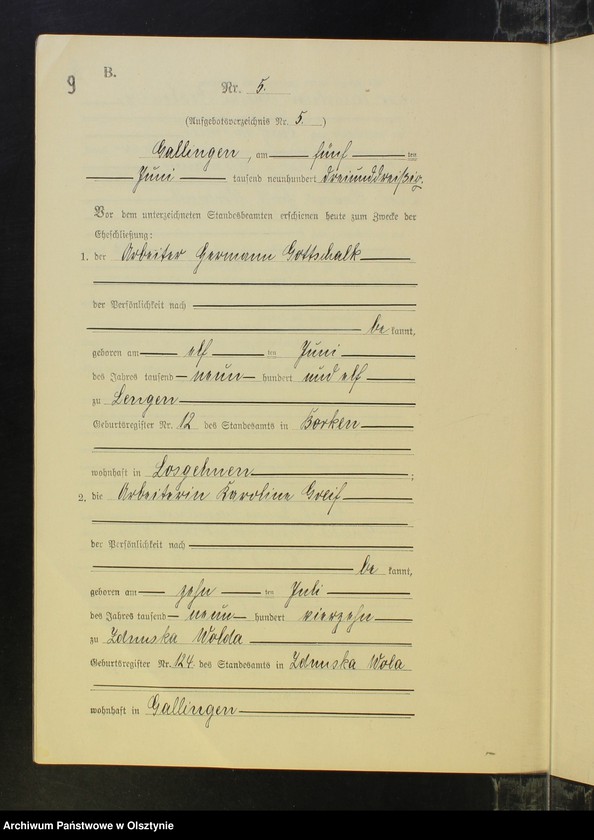 9
B.
Nr. 5.
(Aufgebotsverzeichnis Nr. 5.)
Gallingen, am fünf ten
Juni tausend neunhundert dreiunddreißig.
Vor dem unterzeichneten Standesbeamten erschienen heute zum Zwecke der
Eheschließung:
1. der Arbeiter Hermann Gottschalk
der Persönlichkeit nach
be kannt,
geboren am elf ten Juni
des Jahres tausend neun hundert und elf
zu Lengen
Geburtsregister Nr. 12 des Standesamts in Borken
wohnhaft in Losgehnen;
2. die Arbeiterin Karoline Greif
der Persönlichkeit nach
be kannt,
geboren am zehn ten Juli
des Jahres tausend neun hundert vierzehn
zu Zdunska Wolda
Geburtsregister Nr. 124 des Standesamts in Zdunska Wola
wohnhaft in Gallingen
Archiwum Państwowe w Olsztynie